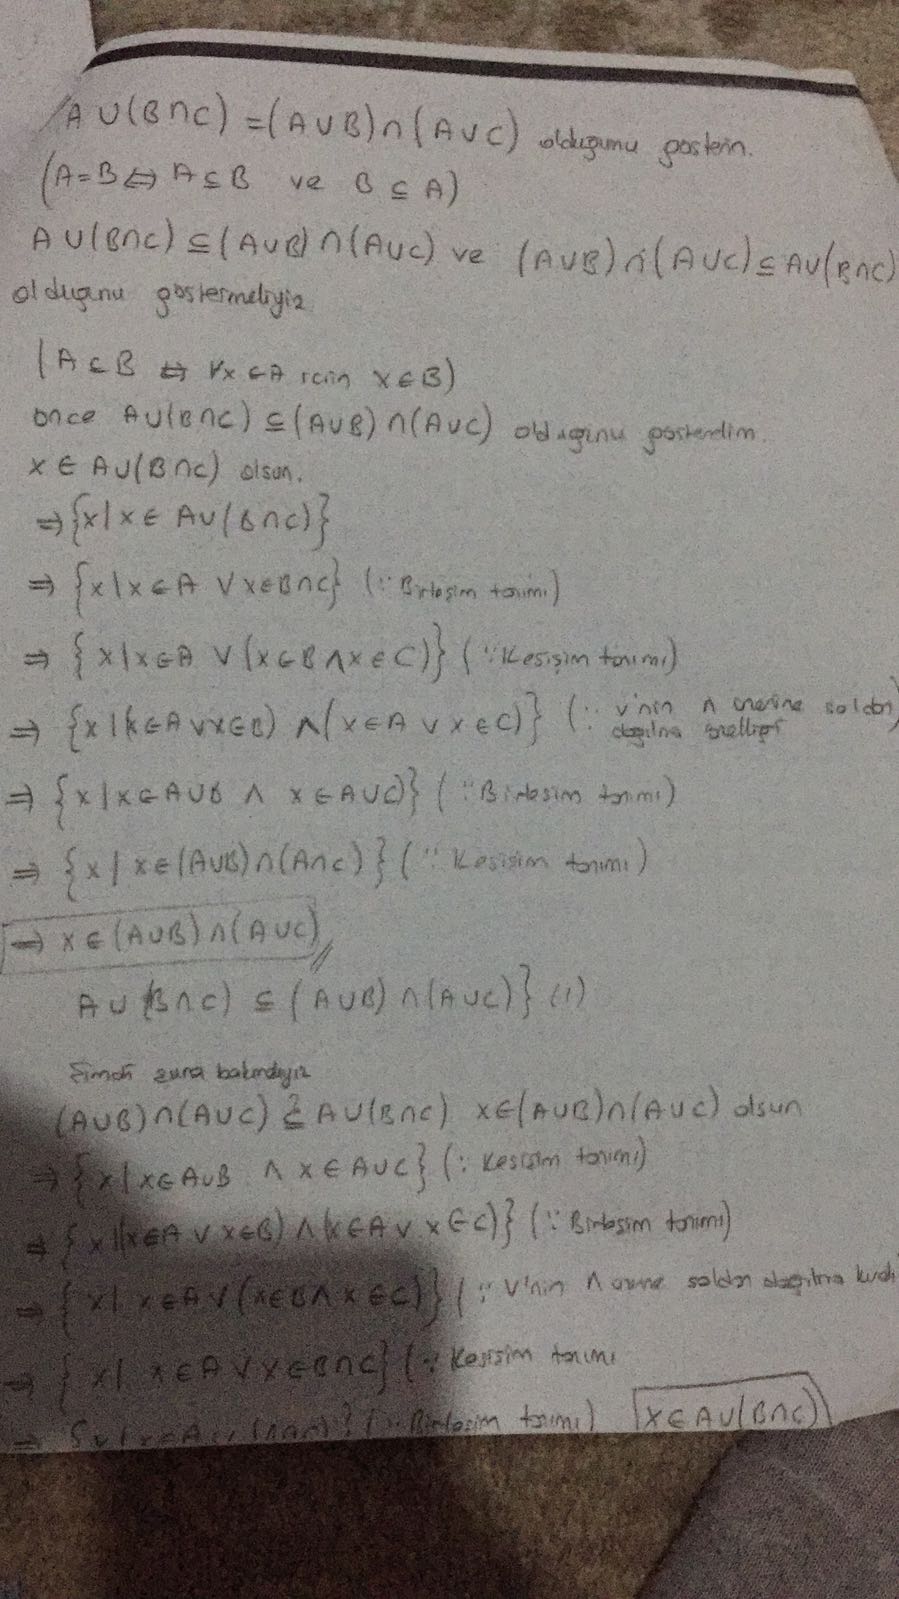 A∪(B∩C) = (A∪B)∩(A∪C) olduğunu gösterin.
(A=B ⇔ A⊆B ve B⊆A)
A∪(B∩C) ⊆ (A∪B)∩(A∪C) ve (A∪B)∩(A∪C) ⊆ A∪(B∩C)
olduğunu göstermeliyiz
(A⊆B ⇔ ∀x∈A için x∈B)
önce A∪(B∩C) ⊆ (A∪B)∩(A∪C) olduğunu gösterelim.
x ∈ A∪(B∩C) olsun.
⇒ {x | x ∈ A∪(B∩C)}
⇒ {x | x∈A ∨ x∈B∩C} (∵ Birleşim tanımı)
⇒ {x | x∈A ∨ (x∈B ∧ x∈C)} (∵ Kesişim tanımı)
⇒ {x | (x∈A ∨ x∈B) ∧ (x∈A ∨ x∈C)} (∵ ∨'nin ∧ üzerine soldan
dağılma özelliği
⇒ {x | x∈A∪B ∧ x∈A∪C)} (∵ Birleşim tanımı)
⇒ {x | x∈(A∪B)∩(A∩C)} (∵ Kesişim tanımı)
⇒ x ∈ (A∪B)∩(A∪C)
A∪(B∩C) ⊆ (A∪B)∩(A∪C)} (1)
Şimdi şuna
(A∪B)∩(A∪C) ⊆? A∪(B∩C) x∈(A∪B)∩(A∪C) olsun
⇒ {x | x∈A∪B ∧ x∈A∪C} (∵ Kesişim tanımı)
⇒ {x | (x∈A ∨ x∈B) ∧ (x∈A ∨ x∈C)} (∵ Birleşim tanımı)
⇒ {x | x∈A ∨ (x∈B ∧ x∈C)} (∵ ∨'nin ∧ soldan dağılma
⇒ {x | x∈A ∨ x∈B∩C} (∵ Kesişim tanımı
⇒ (∵ Birleşim tanımı) x∈A∪(B∩C)